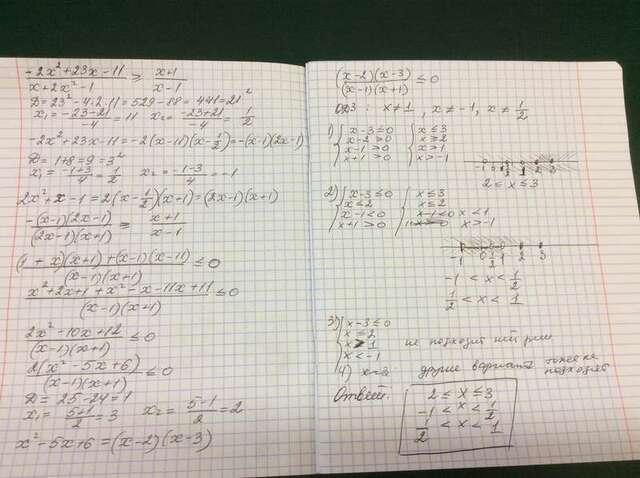 -2x²+23x-11 / x+2x²-1 ≥ x+1 / x-1
D=23²-4·2·11=529-88=441=21²
x₁=-23-21/-4=11 x₂=-23+21/-4=1/2
-2x²+23x-11=-2(x-11)(x-1/2)=-(x-11)(2x-1)
D=1+8=9=3²
x₁=-1+3/4=1/2 x₂=-1-3/4=-1
2x²+x-1=2(x-1/2)(x+1)=(2x-1)(x+1)
-(x-11)(2x-1) / (2x-1)(x+1) ≥ x+1 / x-1
(1+x)(x+1)+(x-1)(x-11) / (x-1)(x+1) ≤0
x²+2x+1+x²-x-11x+11 / (x-1)(x+1) ≤0
2x²-10x+12 / (x-1)(x+1) ≤0
2(x²-5x+6) / (x-1)(x+1) ≤0
D=25-24=1
x₁=5+1/2=3 x₂=5-1/2=2
x²-5x+6=(x-2)(x-3)
(x-2)(x-3) / (x-1)(x+1) ≤0
ОДЗ: x≠1, x≠-1, x≠1/2
1) { x-3≤0 { x≤3
x-2≥0 x≥2
x-1>0 x>1
x+1>0 x>-1
2≤x≤3
2) { x-3≤0 { x≤3
x≤2 x≤2
x-1<0 x<1
x+1>0 x>-1
-1 0 1/2 1 2 3
-1<x<1/2
1/2<x<1
3) { x-3≤0
x≤2
x>1 не подходит
x<-1
4) другие варианты тоже не
подходят
Ответ: 2≤x≤3
-1<x<1/2
1/2<x<1